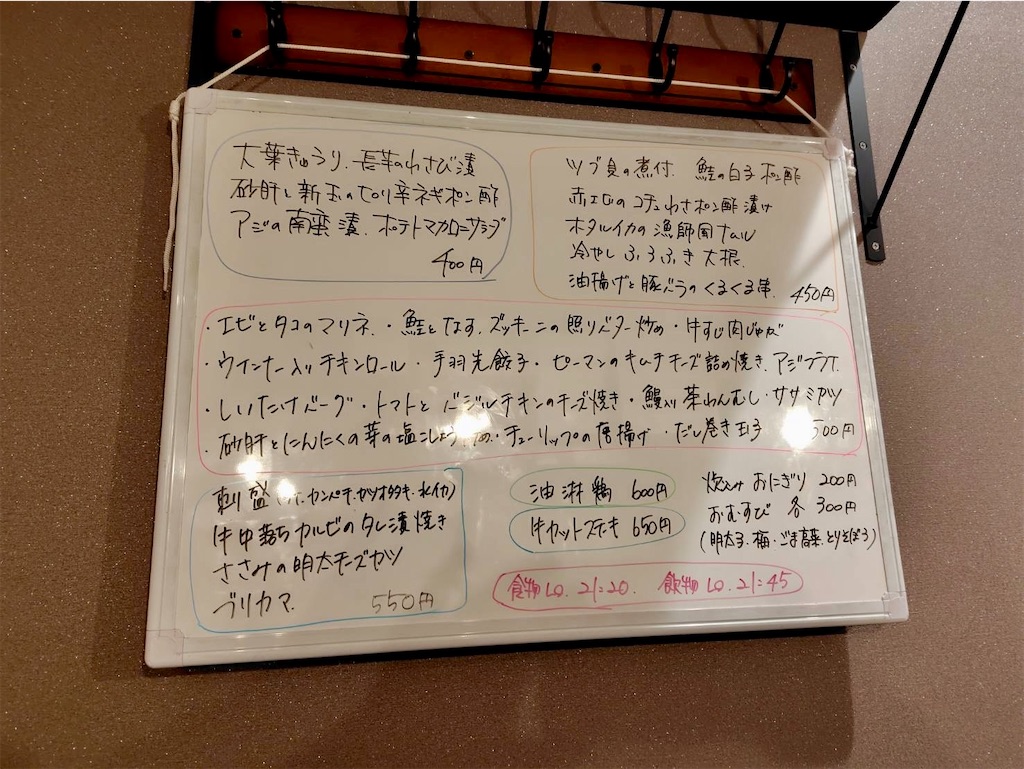 大葉きゅうり、長芋のわさび漬
砂肝と新玉のピリ辛ネギポン酢
アジの南蛮漬、ポテトマカロニサラダ
400円
ツブ貝の煮付、鮭の白子ポン酢
赤エビのコチュわさポン酢漬け
ホタルイカの漁師風ナムル
冷やしふろふき大根、
油揚げと豚バラのくるくる串、450円
・エビとタコのマリネ・鮭となす、ズッキーニの照りバター炒め・牛すじ肉じゃが
・ウインナー入りチキンロール・手羽先餃子・ピーマンのキムチチーズ詰め焼き、アジフライ、
・しいたけバーグ・トマトとバジルチキンのチーズ焼き・鰻入り茶わんむし・ササミカツ
・砂肝とにんにくの芽の塩こしょう炒め・チューリップの唐揚げ・だし巻き玉子 500円
刺盛(カンパチ、カツオタタキ、水イカ)
牛中落ちカルビのタレ漬焼き
ささみの明太チーズカツ
ブリカマ 550円
油淋鶏 600円
牛カットステーキ 650円
炊込み おにぎり 200円
おむすび 各 300円
(明太子・梅・ごま高菜、とりそぼろ)
食物LO. 21:20、飲物LO. 21:45